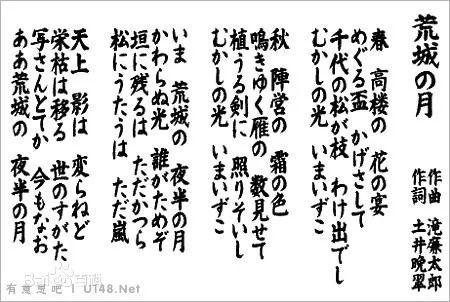 荒城の月
作曲 滝廉太郎
作詞 土井晩翠
春 高楼の 花の宴
めぐる盃 かげさして
千代の松が枝 わけ出でし
むかしの光 いまいずこ
秋 陣営の 霜の色
鳴きゆく雁の 数見せて
植うる剣に 照りそいし
むかしの光 いまいずこ
いま 荒城の 夜半の月
かわらぬ光 誰がためぞ
垣に残るは ただかつら
松にうたうは ただ嵐
天上 影は 変らねど
栄枯は移る 世のすがた
写さんとてか 今もなお
ああ荒城の 夜半の月
Bai 百科
有意思吧 | U148.Net